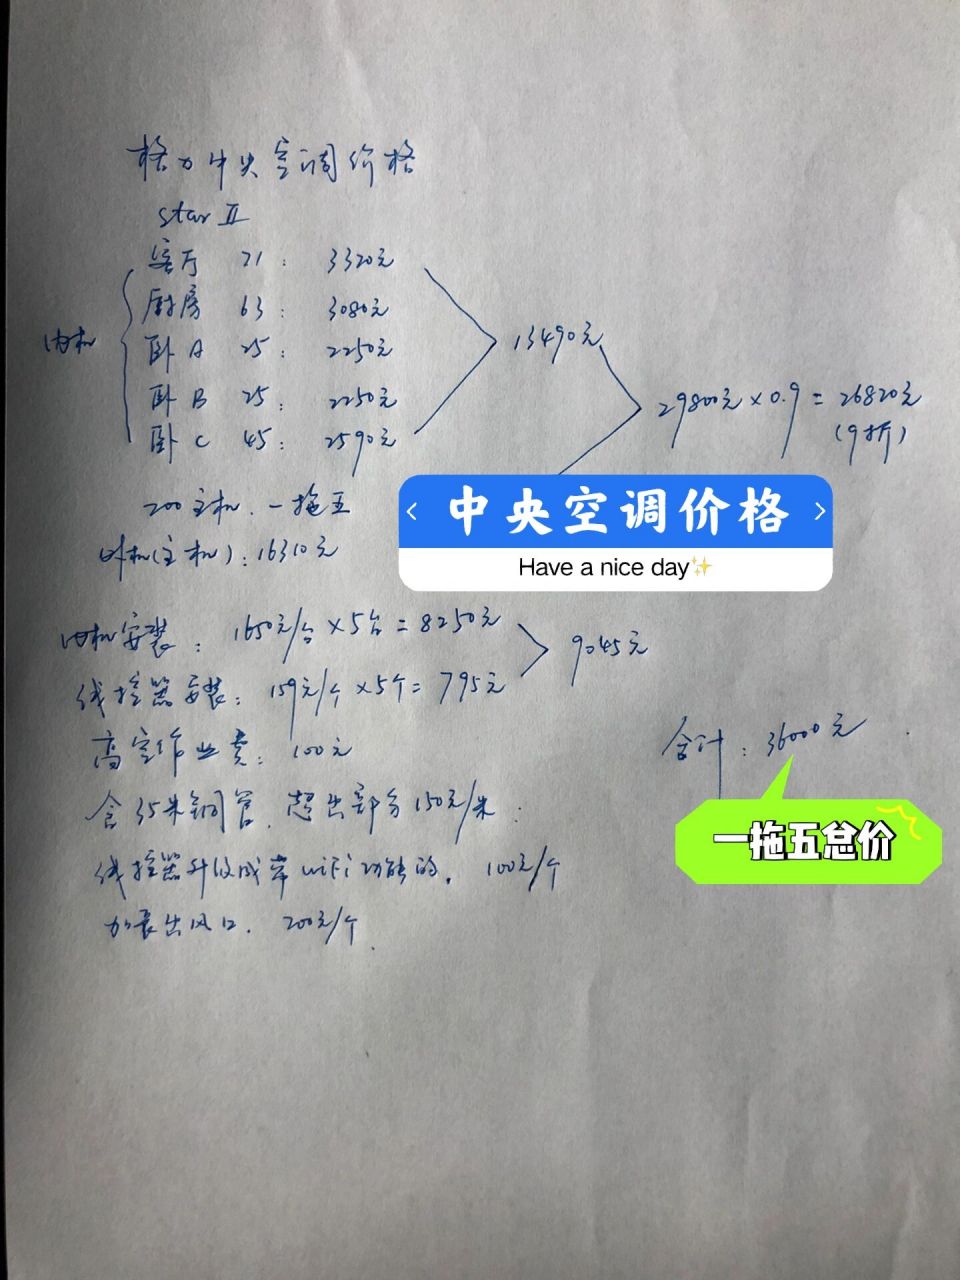 格力中央空调价格
star II
内机
客厅 71: 3320元
厨房 63: 3080元
卧A 25: 2250元
卧B 25: 2250元
卧C 45: 2590元
13490元
29800元×0.9=26820元
(9折)
200主机.一拖五
外机(主机):16310元
中央空调价格
Have a nice day✨
内机安装: 1650元/台×5台=8250元
线控器安装: 159元/个×5个=795元
9045元
高空作业费: 100元
合计: 36000元
一拖五总价
含35米铜管.超出部分150元/米.
线控器升级成带wifi功能的. 100元/个
加长出风口. 200元/个.